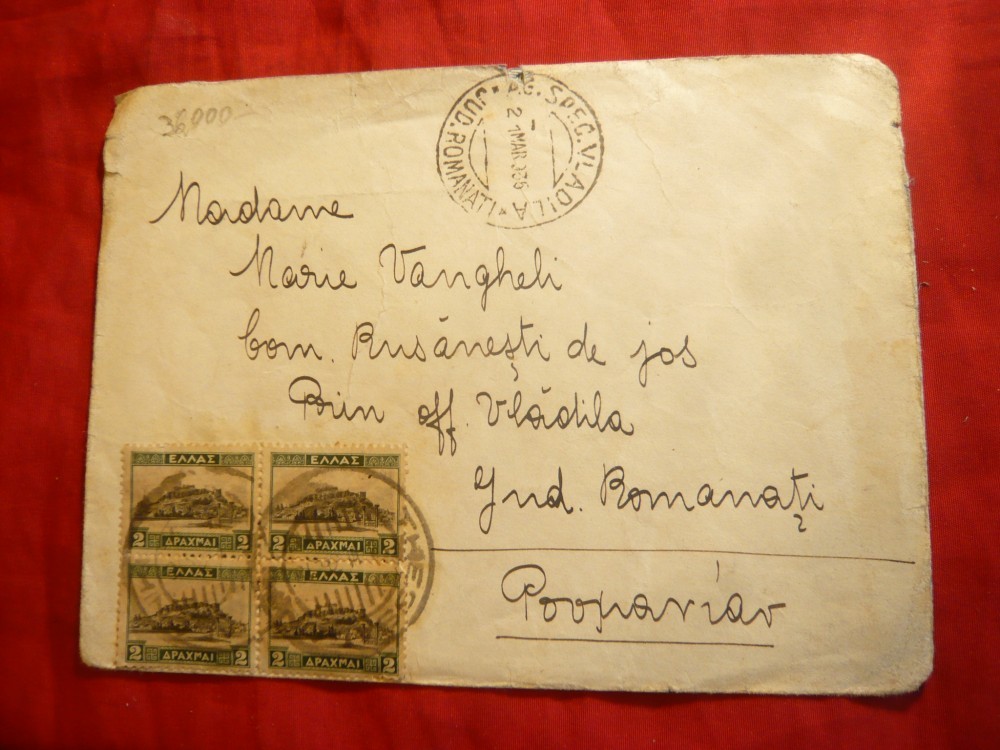 36,000-
AG. SPEC. VLADILA • JUD. ROMANATI •
2-1 MAR. 936
Madame
Marie Vangheli
Com. Rusănești de jos
Prin off. Vlădila
Jud. Romanați
Ρουμανίαν
ΕΛΛΑΣ ΕΛΛΑΣ
2 ΔΡΑΧΜΑΙ 2 2 ΔΡΑΧΜΑΙ 2
ΕΛΛΑΣ ΕΛΛΑΣ
2 ΔΡΑΧΜΑΙ 2 2 ΔΡΑΧΜΑΙ 2